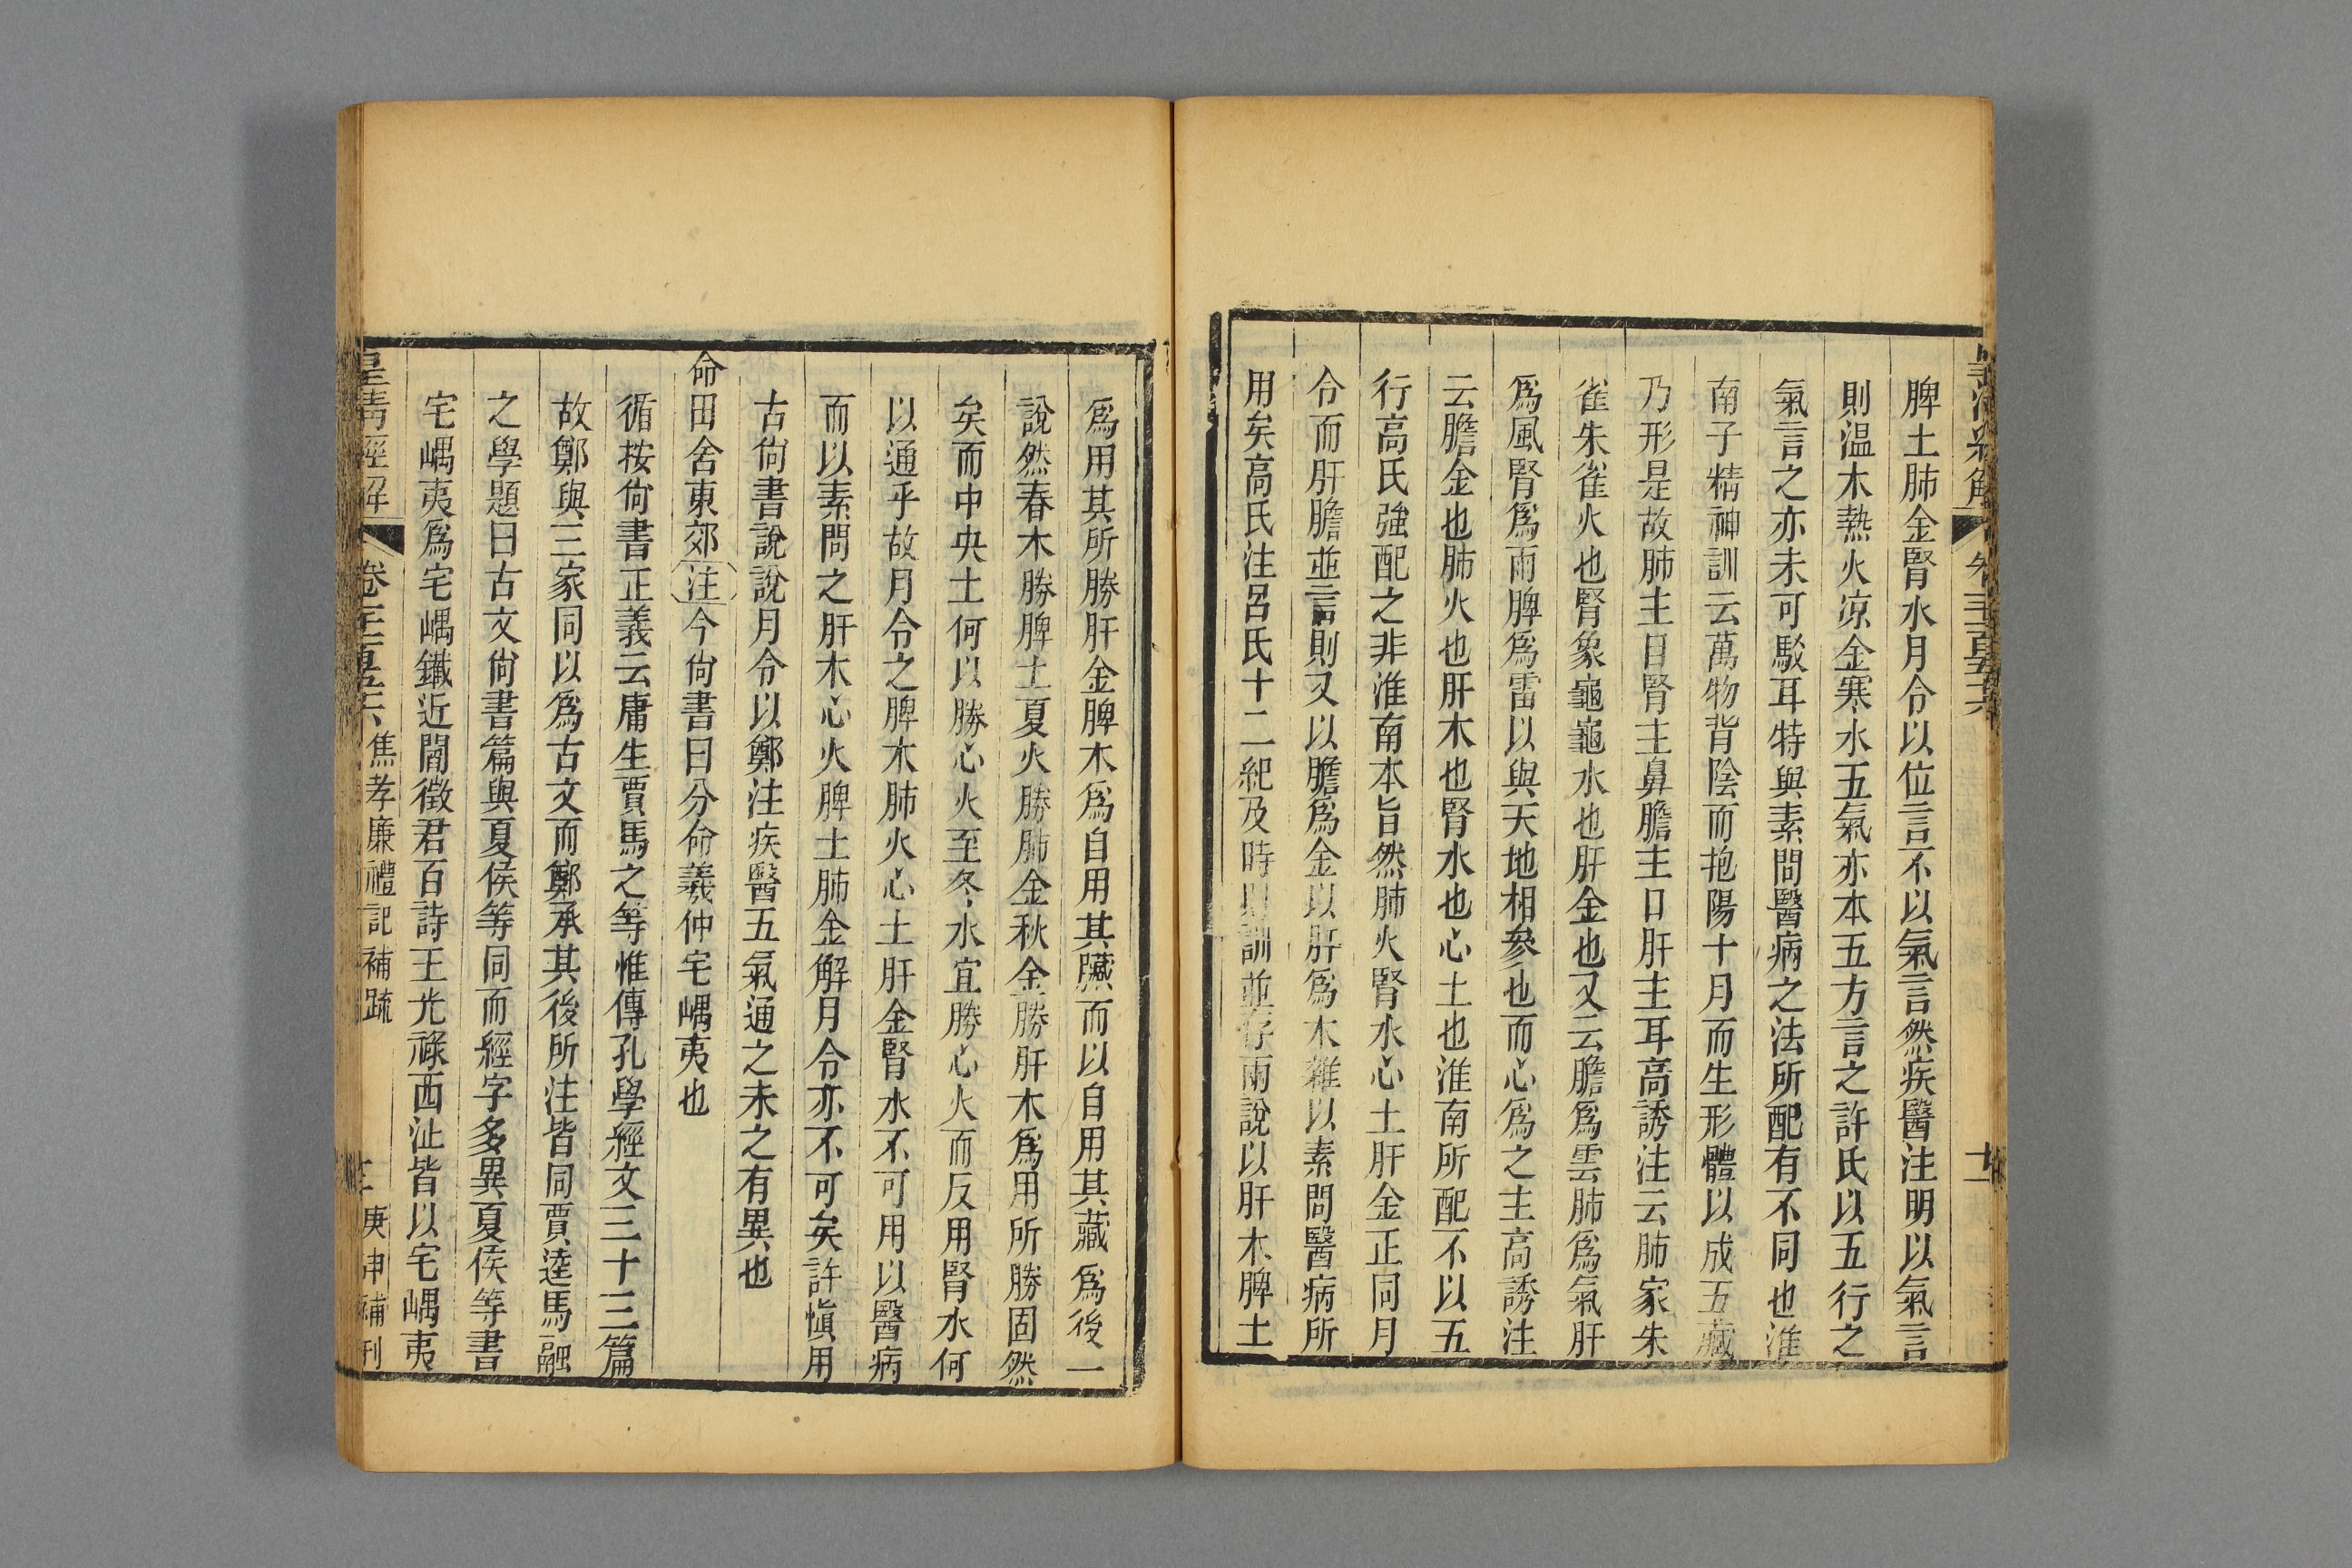 脾土肺金腎水月令以位言不以氣言然疾醫注明以氣言
則温木熱火凉金寒水五氣亦本五方言之許氏以五行之
氣言之亦未可駁耳特與素問醫病之法所配有不同也淮
南子精神訓云萬物背陰而抱陽十月而生形體以成五藏
乃形是故肺主目腎主鼻膽主口肝主耳高誘注云肺家朱
雀朱雀火也腎象龜龜水也肝金也又云膽爲雲肺爲氣肝
爲風腎爲雨脾爲雷以與天地相參也而心爲之主高誘注
云膽金也肺火也肝木也腎水也心土也淮南所配不以五
行高氏強配之非淮南本旨然肺火腎水心土肝金正同月
令而肝膽並言則又以膽爲金以肝爲木雜以素問醫病所
用矣高氏注呂氏十二紀及時則訓並存兩說以肝木脾土
爲用其所勝肝金脾木爲自用其臟而以自用其藏爲後一
說然春木勝脾土夏火勝肺金秋金勝肝木爲用所勝固然
矣而中央土何以勝心火至冬水宜勝心火而反用腎水何
以通乎故月令之脾木肺火心土肝金腎水不可用以醫病
而以素問之肝木心火脾土肺金解月令亦不可矣許愼用
古尙書說說月令以鄭注疾醫五氣通之未之有異也
命田舍東郊注今尙書曰分命羲仲宅嵎夷也
循按尙書正義云庸生賈馬之等惟傳孔學經文三十三篇
故鄭與三家同以爲古文而鄭承其後所注皆同賈逵馬融
之學題曰古文尙書篇與夏侯等同而經字多異夏侯等書
宅嵎夷爲宅嵎鐵近閻徵君百詩王光祿西沚皆以宅嵎夷
皇清經解
焦孝廉禮記補疏
庚申補刊